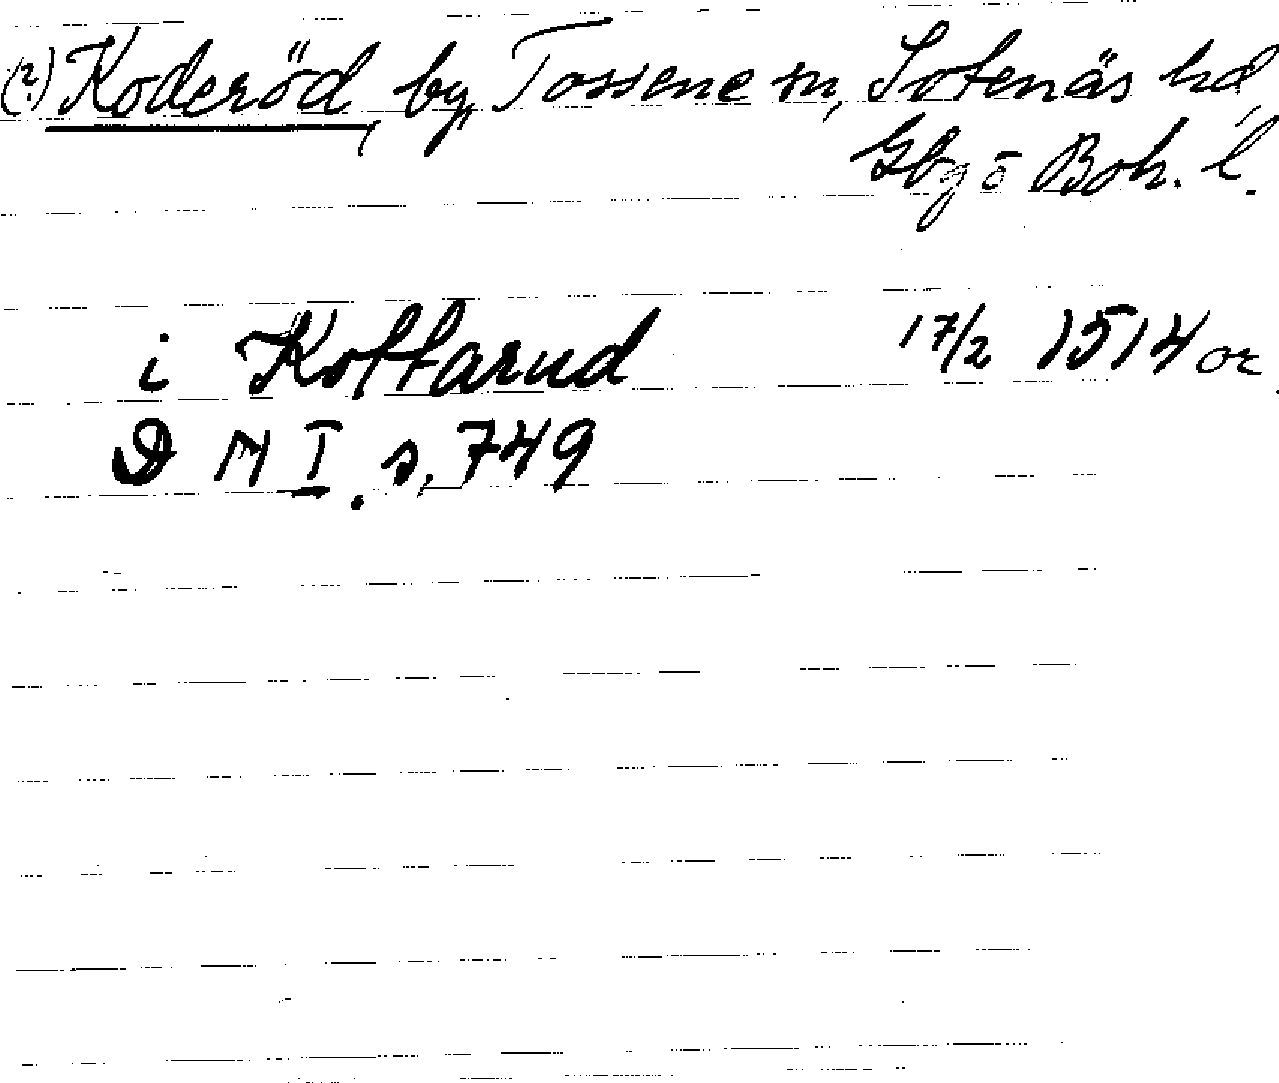 (?) Koderöd, by, Tossene sn, Sotenäs hd,
Gbg o Boh. l.
i Kottarud 17/2 1514 or
D N I. s. 749